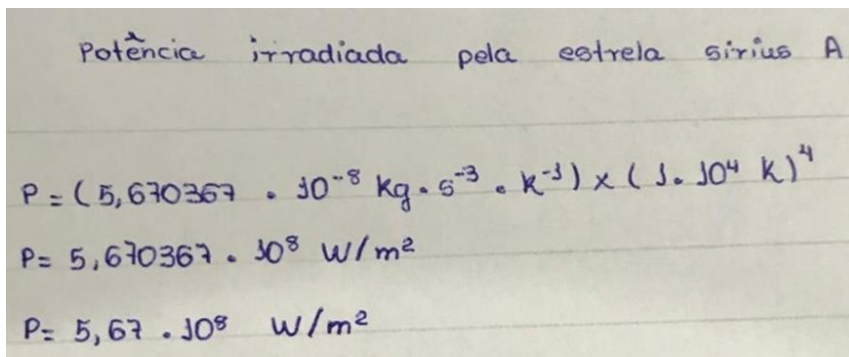 Potência irradiada pela estrela sirius A
P = (5,670367 . 10⁻⁸ Kg . s⁻³ . k⁻¹) x (1. 10⁴ K)⁴
P= 5,670367 . 10⁸ W/m²
P= 5,67 . 10⁸ W/m²